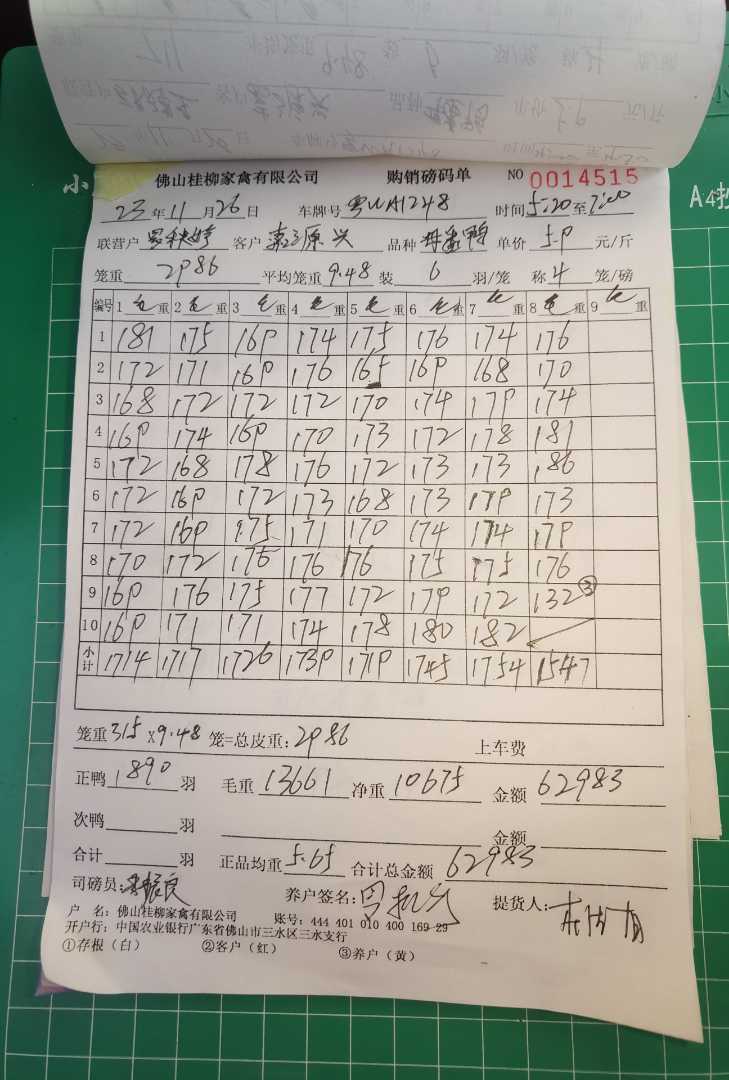 佛山桂柳家禽有限公司 购销磅码单 NO 0014515
23年11月26日 车牌号 粤WA1248 时间 5:20至7:00
联营户 客户 原兴 品种 鸭 单价 5.9 元/斤
笼重 2986 平均笼重 9.48 装 6 羽/笼 称 4 笼/磅
编号 1 毛重 2 毛重 3 毛重 4 毛重 5 毛重 6 毛重 7 毛重 8 毛重 9 毛重
1 181 175 169 174 175 176 174 176
2 172 171 169 176 165 169 168 170
3 168 172 172 172 170 174 179 174
4 169 174 169 170 173 172 178 181
5 172 168 178 176 172 173 173 186
6 172 169 172 173 168 173 179 173
7 172 169 175 171 170 174 174 179
8 170 172 176 176 176 175 175 176
9 169 176 175 177 172 179 172 132 ③
10 169 171 171 174 178 180 182
小计 1714 1717 1726 1739 1719 1745 1754 1547
笼重 315 x 9.48 笼=总皮重: 2986 上车费
正鸭 1890 羽 毛重 13661 净重 10675 金额 62983
次鸭 羽 金额
合计 羽 正品均重 5.65 合计总金额 62983
司磅员: 养户签名: 提货人:
户 名: 佛山桂柳家禽有限公司 账号: 444 401 010 400 169 29
开户行: 中国农业银行广东省佛山市三水区三水支行
①存根（白） ②客户（红） ③养户（黄）
小
A4